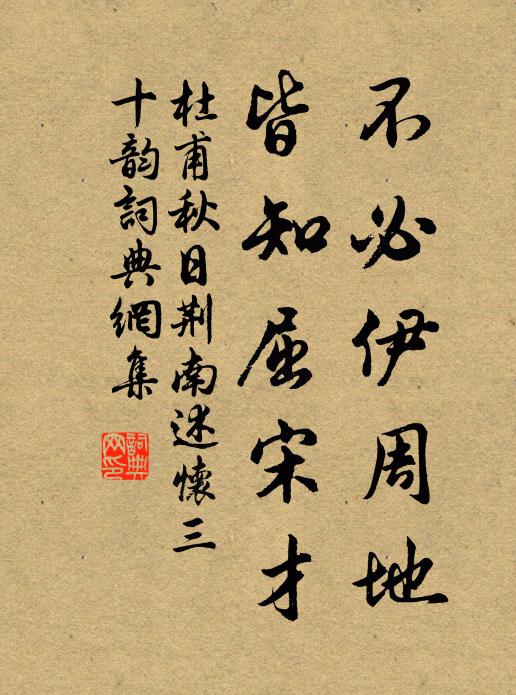 不必伊周地
皆知屈宋才
杜甫秋日荆南述懷三
十韵詞典網集
詞典
网印